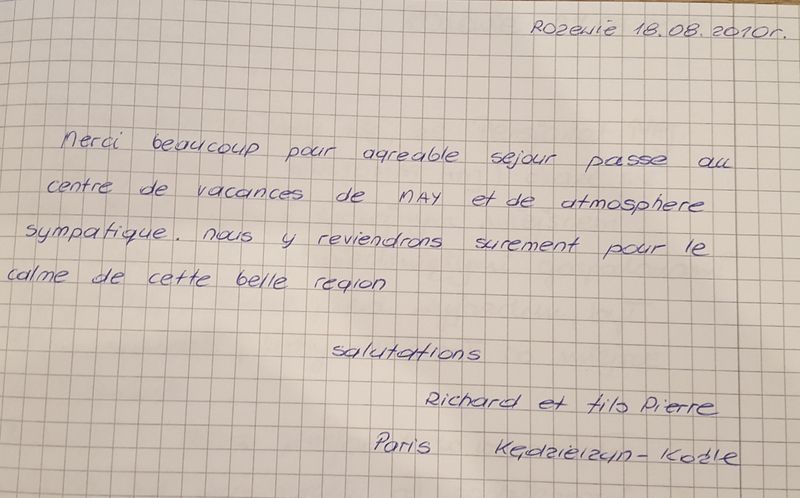 Rozewie 18.08.2010r.
Merci beaucoup pour agreable sejour passe au
centre de vacances de MAY et de atmosphere
sympatique. nous y reviendrons surement pour le
calme de cette belle region
salutations
Richard et fils Pierre
Paris Kędzierzyn-Koźle